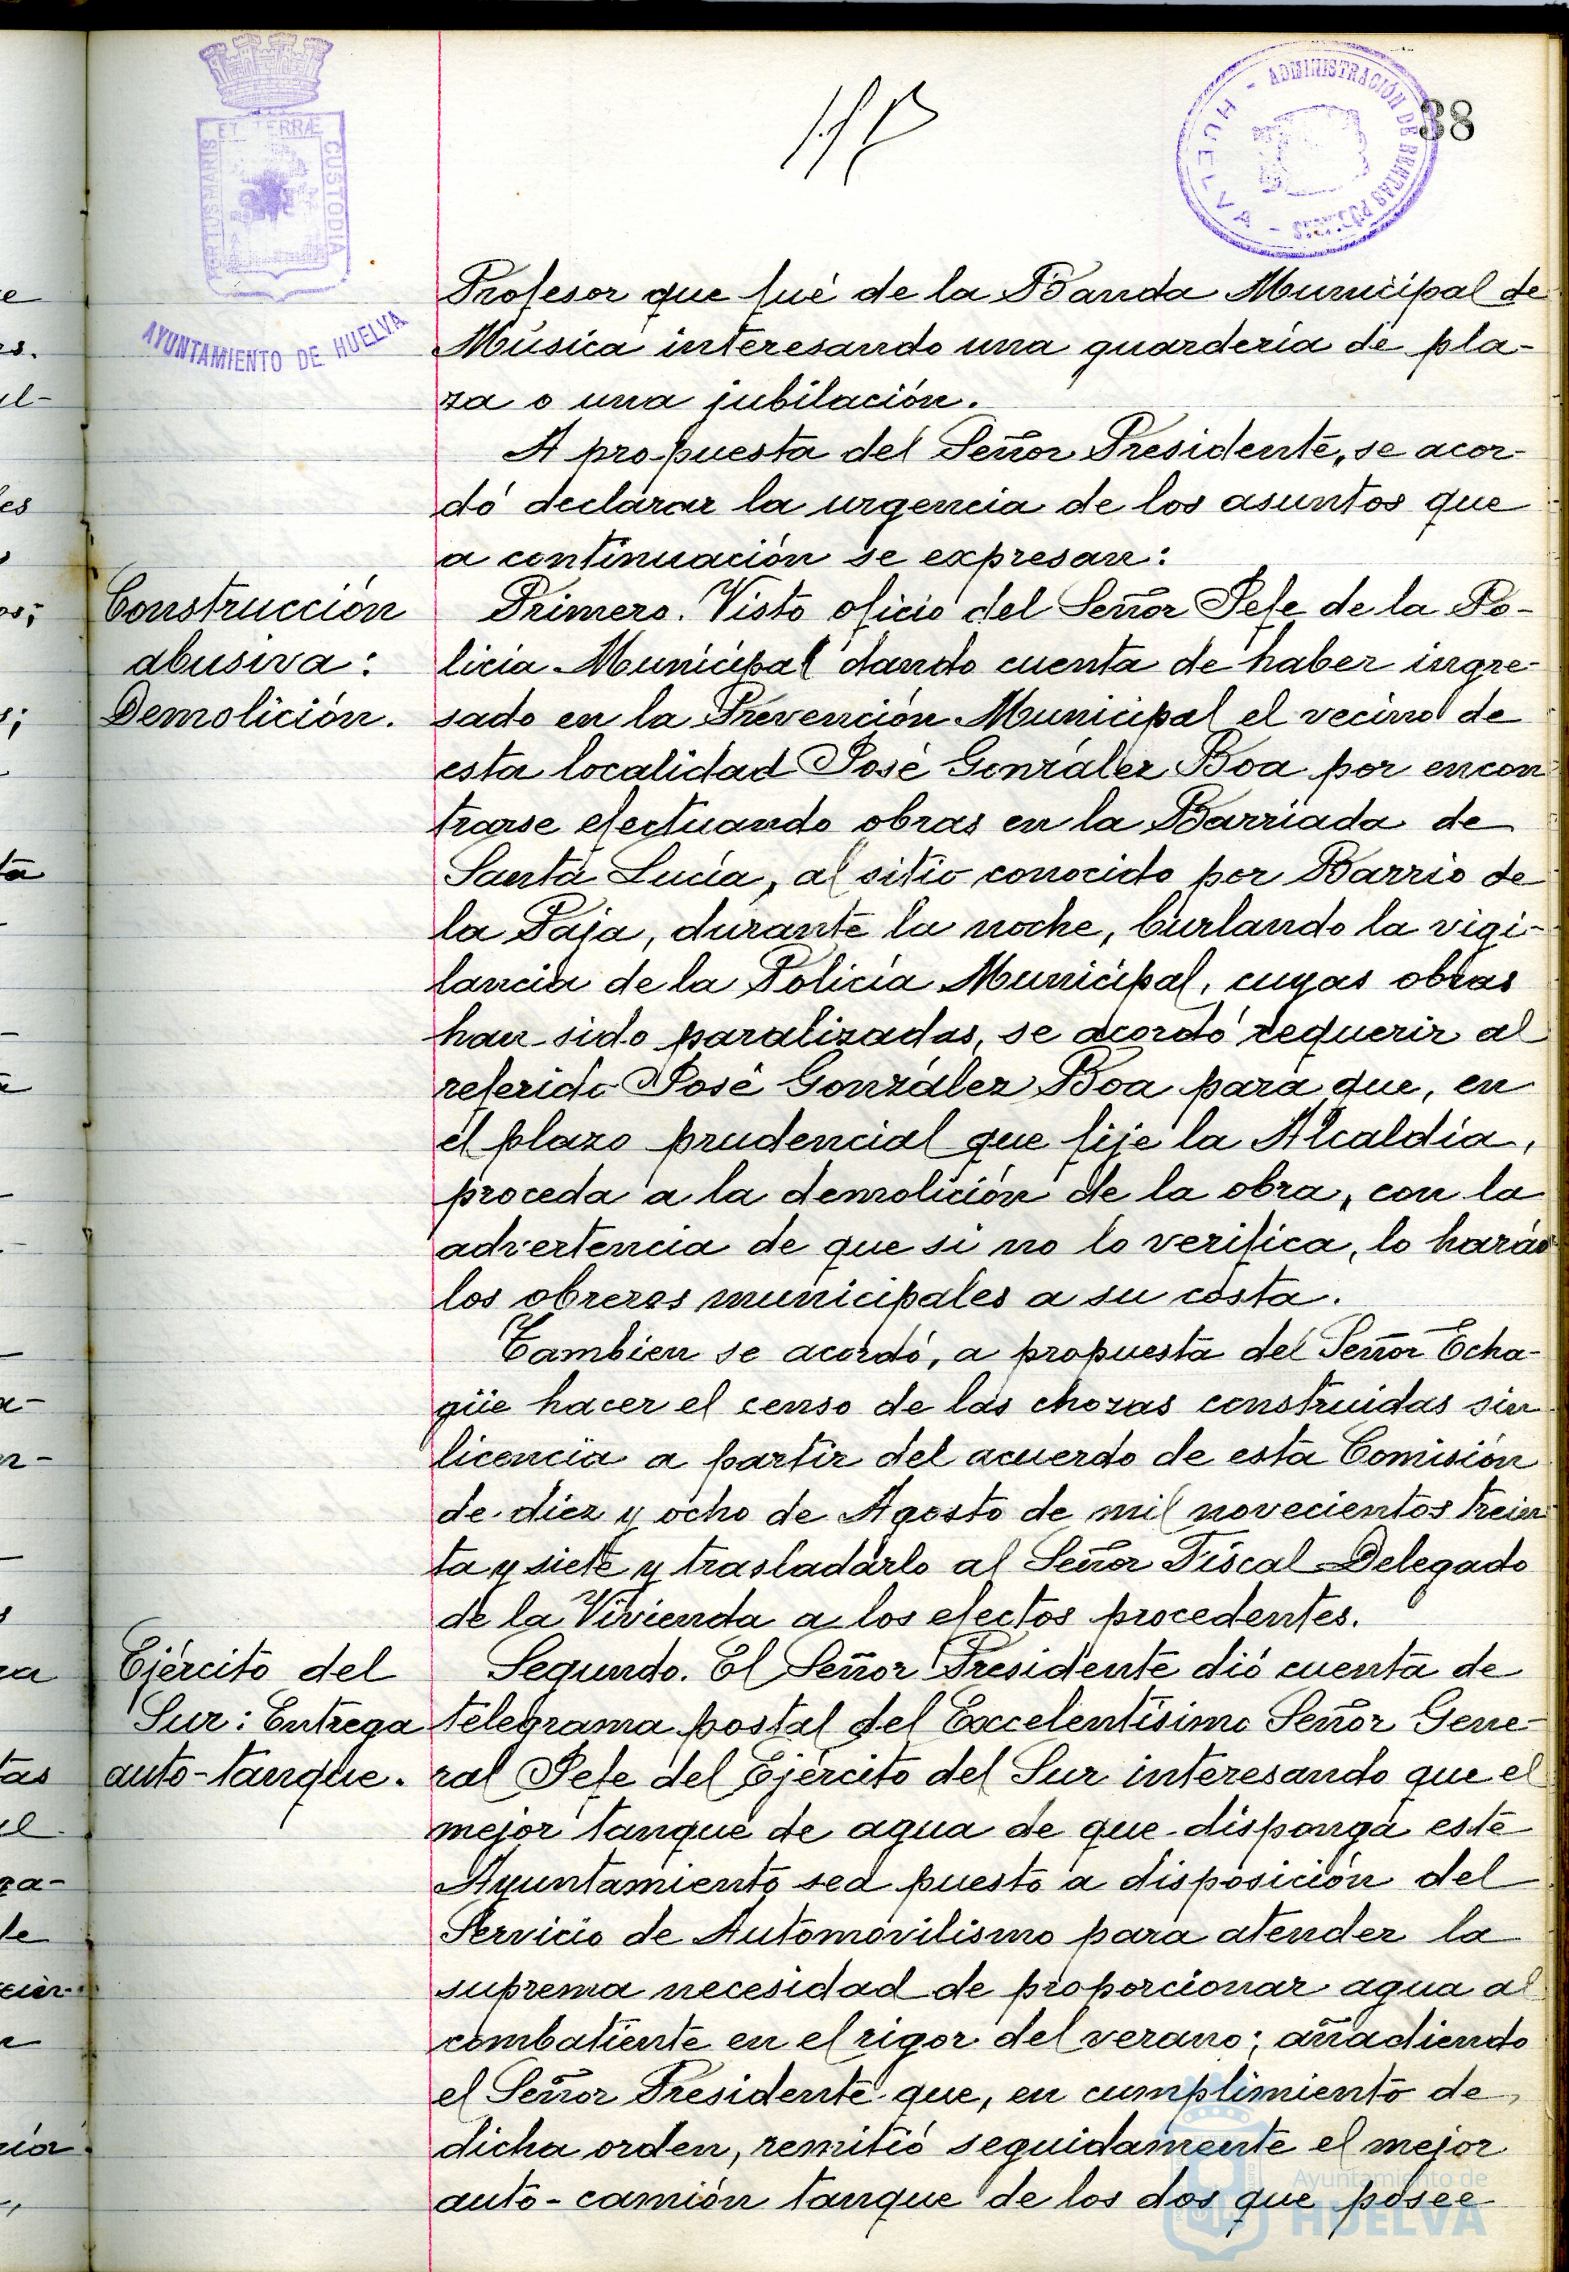 38
ADMINISTRACIÓN DE RENTAS PÚBLICAS - HUELVA -
PORTUS MARIS ET TERRÆ CUSTODIA
AYUNTAMIENTO DE HUELVA
Profesor que fué de la Banda Municipal de
Música interesando una guardería de pla-
za o una jubilación.
A propuesta del Señor Presidente, se acor-
dó declarar la urgencia de los asuntos que
a continuación se expresan:
Construcción
abusiva:
Demolición.
Primero. Visto oficio del Señor Jefe de la Po-
licía Municipal dando cuenta de haber ingre-
sado en la Prevención Municipal el vecino de
esta localidad José González Boa por encon
trarse efectuando obras en la Barriada de
Santa Lucía, al sitio conocido por Barrio de
la Paja, durante la noche, burlando la vigi-
lancia de la Policía Municipal, cuyas obras
han sido paralizadas, se acordó requerir al
referido José González Boa para que, en
el plazo prudencial que fije la Alcaldía,
proceda a la demolición de la obra, con la
advertencia de que si no lo verifica, lo harán
los obreros municipales a su costa.
Tambien se acordó, a propuesta del Señor Echa-
güe hacer el censo de las chozas construidas sin
licencia a partir del acuerdo de esta Comisión
de diez y ocho de Agosto de mil novecientos trein
ta y siete y trasladarlo al Señor Fiscal Delegado
de la Vivienda a los efectos procedentes.
Ejército del
Sur: Entrega
auto-tanque.
Segundo. El Señor Presidente dió cuenta de
telegrama postal del Excelentísimo Señor Gene-
ral Jefe del Ejército del Sur interesando que el
mejor tanque de agua de que disponga este
Ayuntamiento sea puesto a disposición del
Servicio de Automovilismo para atender la
suprema necesidad de proporcionar agua al
combatiente en el rigor del verano; añadiendo
el Señor Presidente que, en cumplimiento de
dicha orden, remitió seguidamente el mejor
auto-camión tanque de los dos que posee
Ayuntamiento de
HUELVA